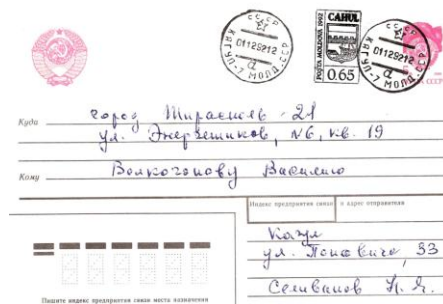 СССР
КАГУЛ-7 МОЛД.ССР
01129212
а
POȘTA MOLDOVA 1992
CAHUL
0.65
СССР
КАГУЛ-7 МОЛД.ССР
01129212
а
Куда город Тирасполь-21
ул. Энергетиков, №6, кв. 19
Кому Волкогонову Василию
Индекс предприятия связи и адрес отправителя
Кагул
ул. Поповича, 33
Селиванов Н. Я.
Пишите индекс предприятия связи места назначения